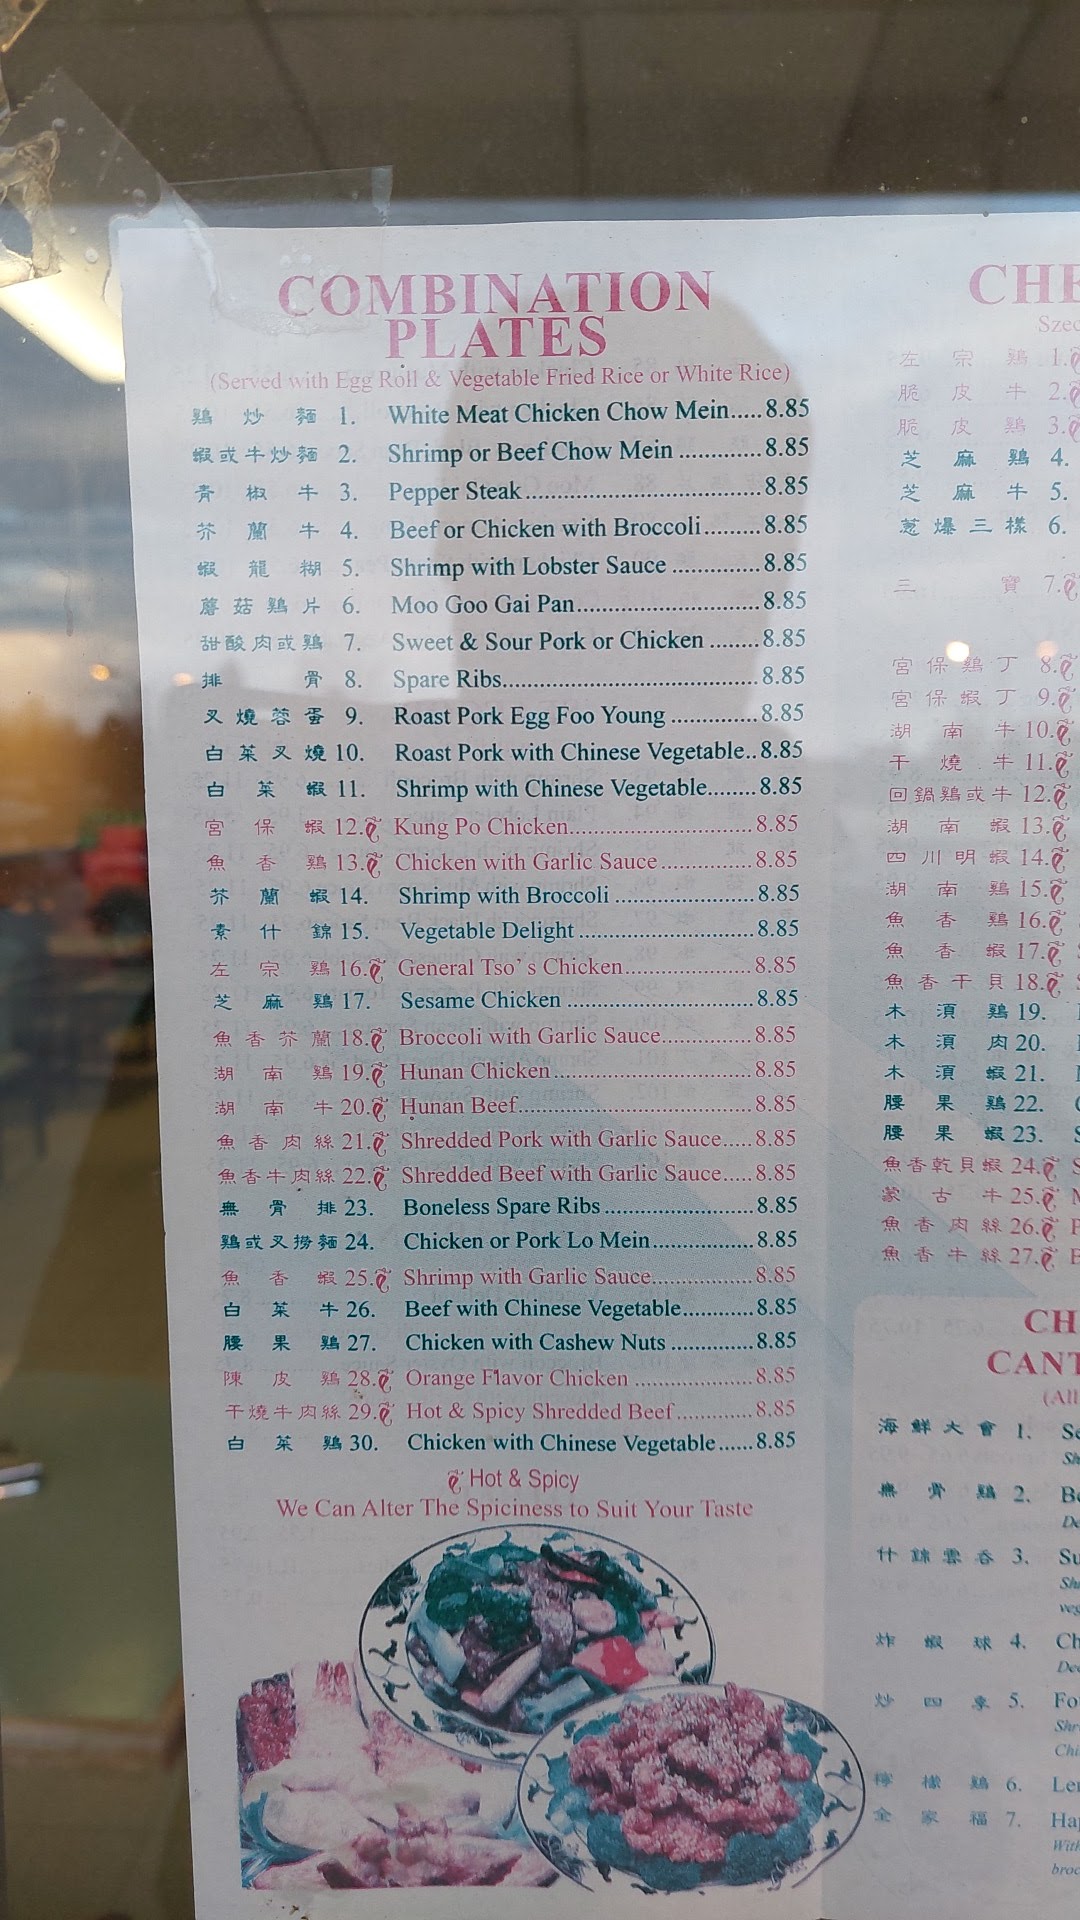 COMBINATION
PLATES
(Served with Egg Roll & Vegetable Fried Rice or White Rice)
鷄炒麵 1. White Meat Chicken Chow Mein.....8.85
蝦或牛炒麵 2. Shrimp or Beef Chow Mein ..............8.85
青椒牛 3. Pepper Steak........................................8.85
芥蘭牛 4. Beef or Chicken with Broccoli.........8.85
蝦龍糊 5. Shrimp with Lobster Sauce ...............8.85
蘑菇鷄片 6. Moo Goo Gai Pan...............................8.85
甜酸肉或鷄 7. Sweet & Sour Pork or Chicken ........8.85
排骨 8. Spare Ribs...........................................8.85
叉燒蓉蛋 9. Roast Pork Egg Foo Young ...............8.85
白菜叉燒 10. Roast Pork with Chinese Vegetable..8.85
白菜蝦 11. Shrimp with Chinese Vegetable........8.85
宮保蝦 12. Kung Po Chicken...............................8.85
魚香鷄 13. Chicken with Garlic Sauce...............8.85
芥蘭蝦 14. Shrimp with Broccoli .......................8.85
素什錦 15. Vegetable Delight .............................8.85
左宗鷄 16. General Tso's Chicken......................8.85
芝麻鷄 17. Sesame Chicken ...............................8.85
魚香芥蘭 18. Broccoli with Garlic Sauce...............8.85
湖南鷄 19. Hunan Chicken .................................8.85
湖南牛 20. Hunan Beef.......................................8.85
魚香肉絲 21. Shredded Pork with Garlic Sauce.....8.85
魚香牛肉絲 22. Shredded Beef with Garlic Sauce.....8.85
無骨排 23. Boneless Spare Ribs .........................8.85
鷄或叉撈麵 24. Chicken or Pork Lo Mein.................8.85
魚香蝦 25. Shrimp with Garlic Sauce.................8.85
白菜牛 26. Beef with Chinese Vegetable............8.85
腰果鷄 27. Chicken with Cashew Nuts ..............8.85
陳皮鷄 28. Orange Flavor Chicken ....................8.85
干燒牛肉絲 29. Hot & Spicy Shredded Beef.............8.85
白菜鷄 30. Chicken with Chinese Vegetable......8.85
Hot & Spicy
We Can Alter The Spiciness to Suit Your Taste
左宗鷄 1.
脆皮牛 2.
脆皮鷄 3.
芝麻鷄 4.
芝麻牛 5.
葱爆三樣 6.
三寶 7.
宮保鷄丁 8.
宮保蝦丁 9.
湖南牛 10.
干燒牛 11.
回鍋鷄或牛 12.
湖南蝦 13.
四川明蝦 14.
湖南鷄 15.
魚香鷄 16.
魚香蝦 17.
魚香干貝 18.
木須鷄 19.
木須肉 20.
木須蝦 21.
腰果鷄 22.
腰果蝦 23.
魚香乾貝蝦 24.
蒙古牛 25.
魚香肉絲 26.
魚香牛絲 27.
(All
海鮮大會 1.
無骨鷄 2.
什錦雲吞 3.
炸蝦球 4.
炒四季 5.
檸檬鷄 6.
全家福 7.